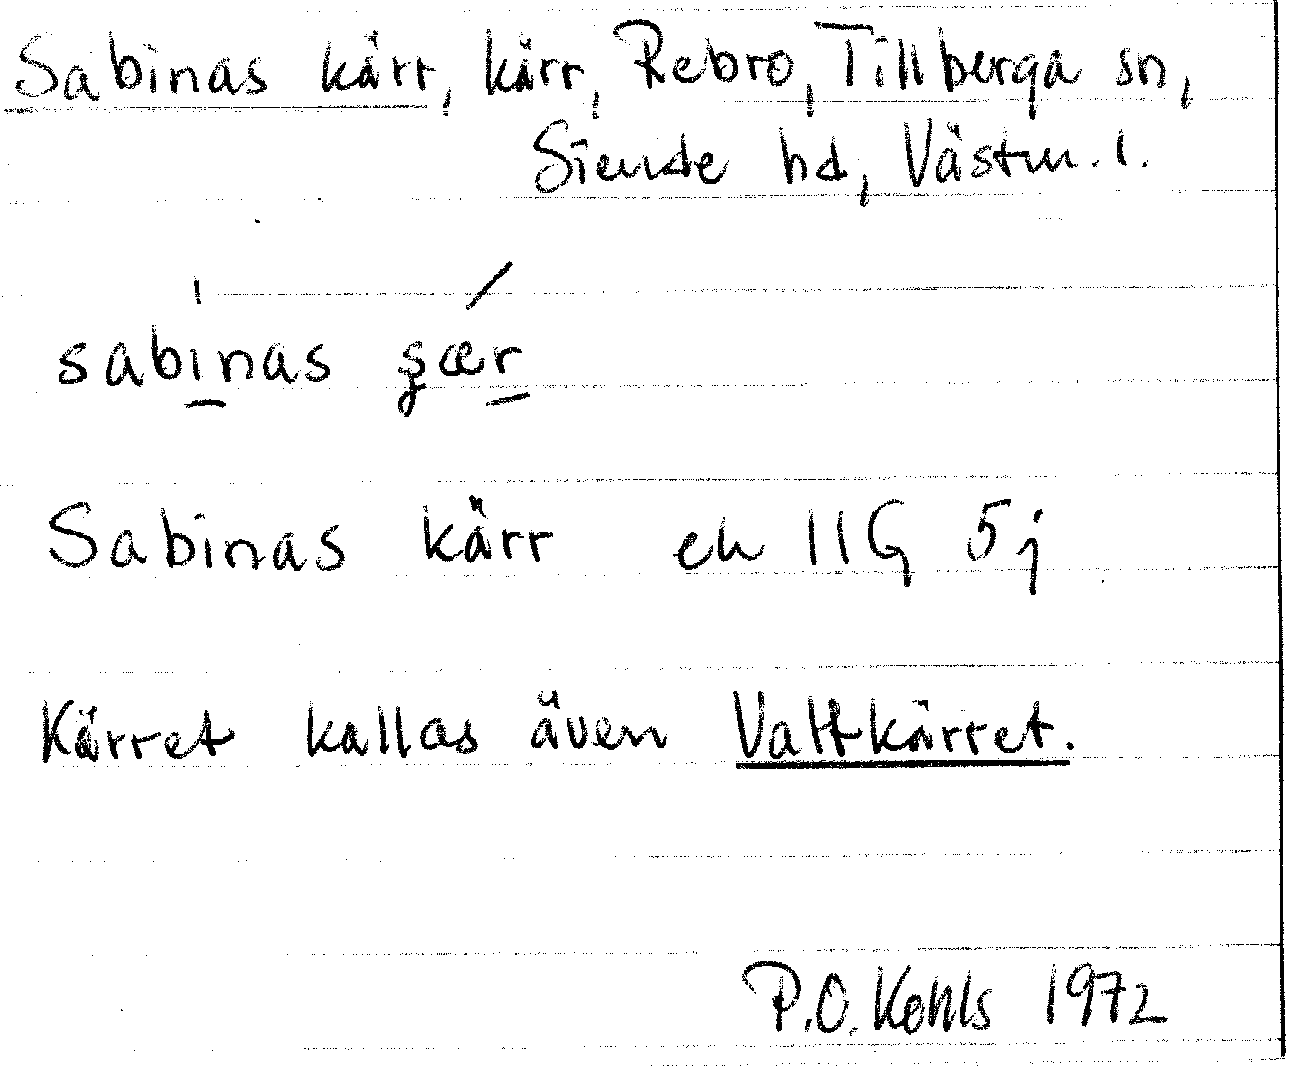 Sabinas kärr, kärr, Rebro, Tillberga sn,
Siende hd, Västm. l.
sabinas şær
Sabinas kärr ek 11G 5j
Kärret kallas även Valtkärret.
P.O. Kohls 1972